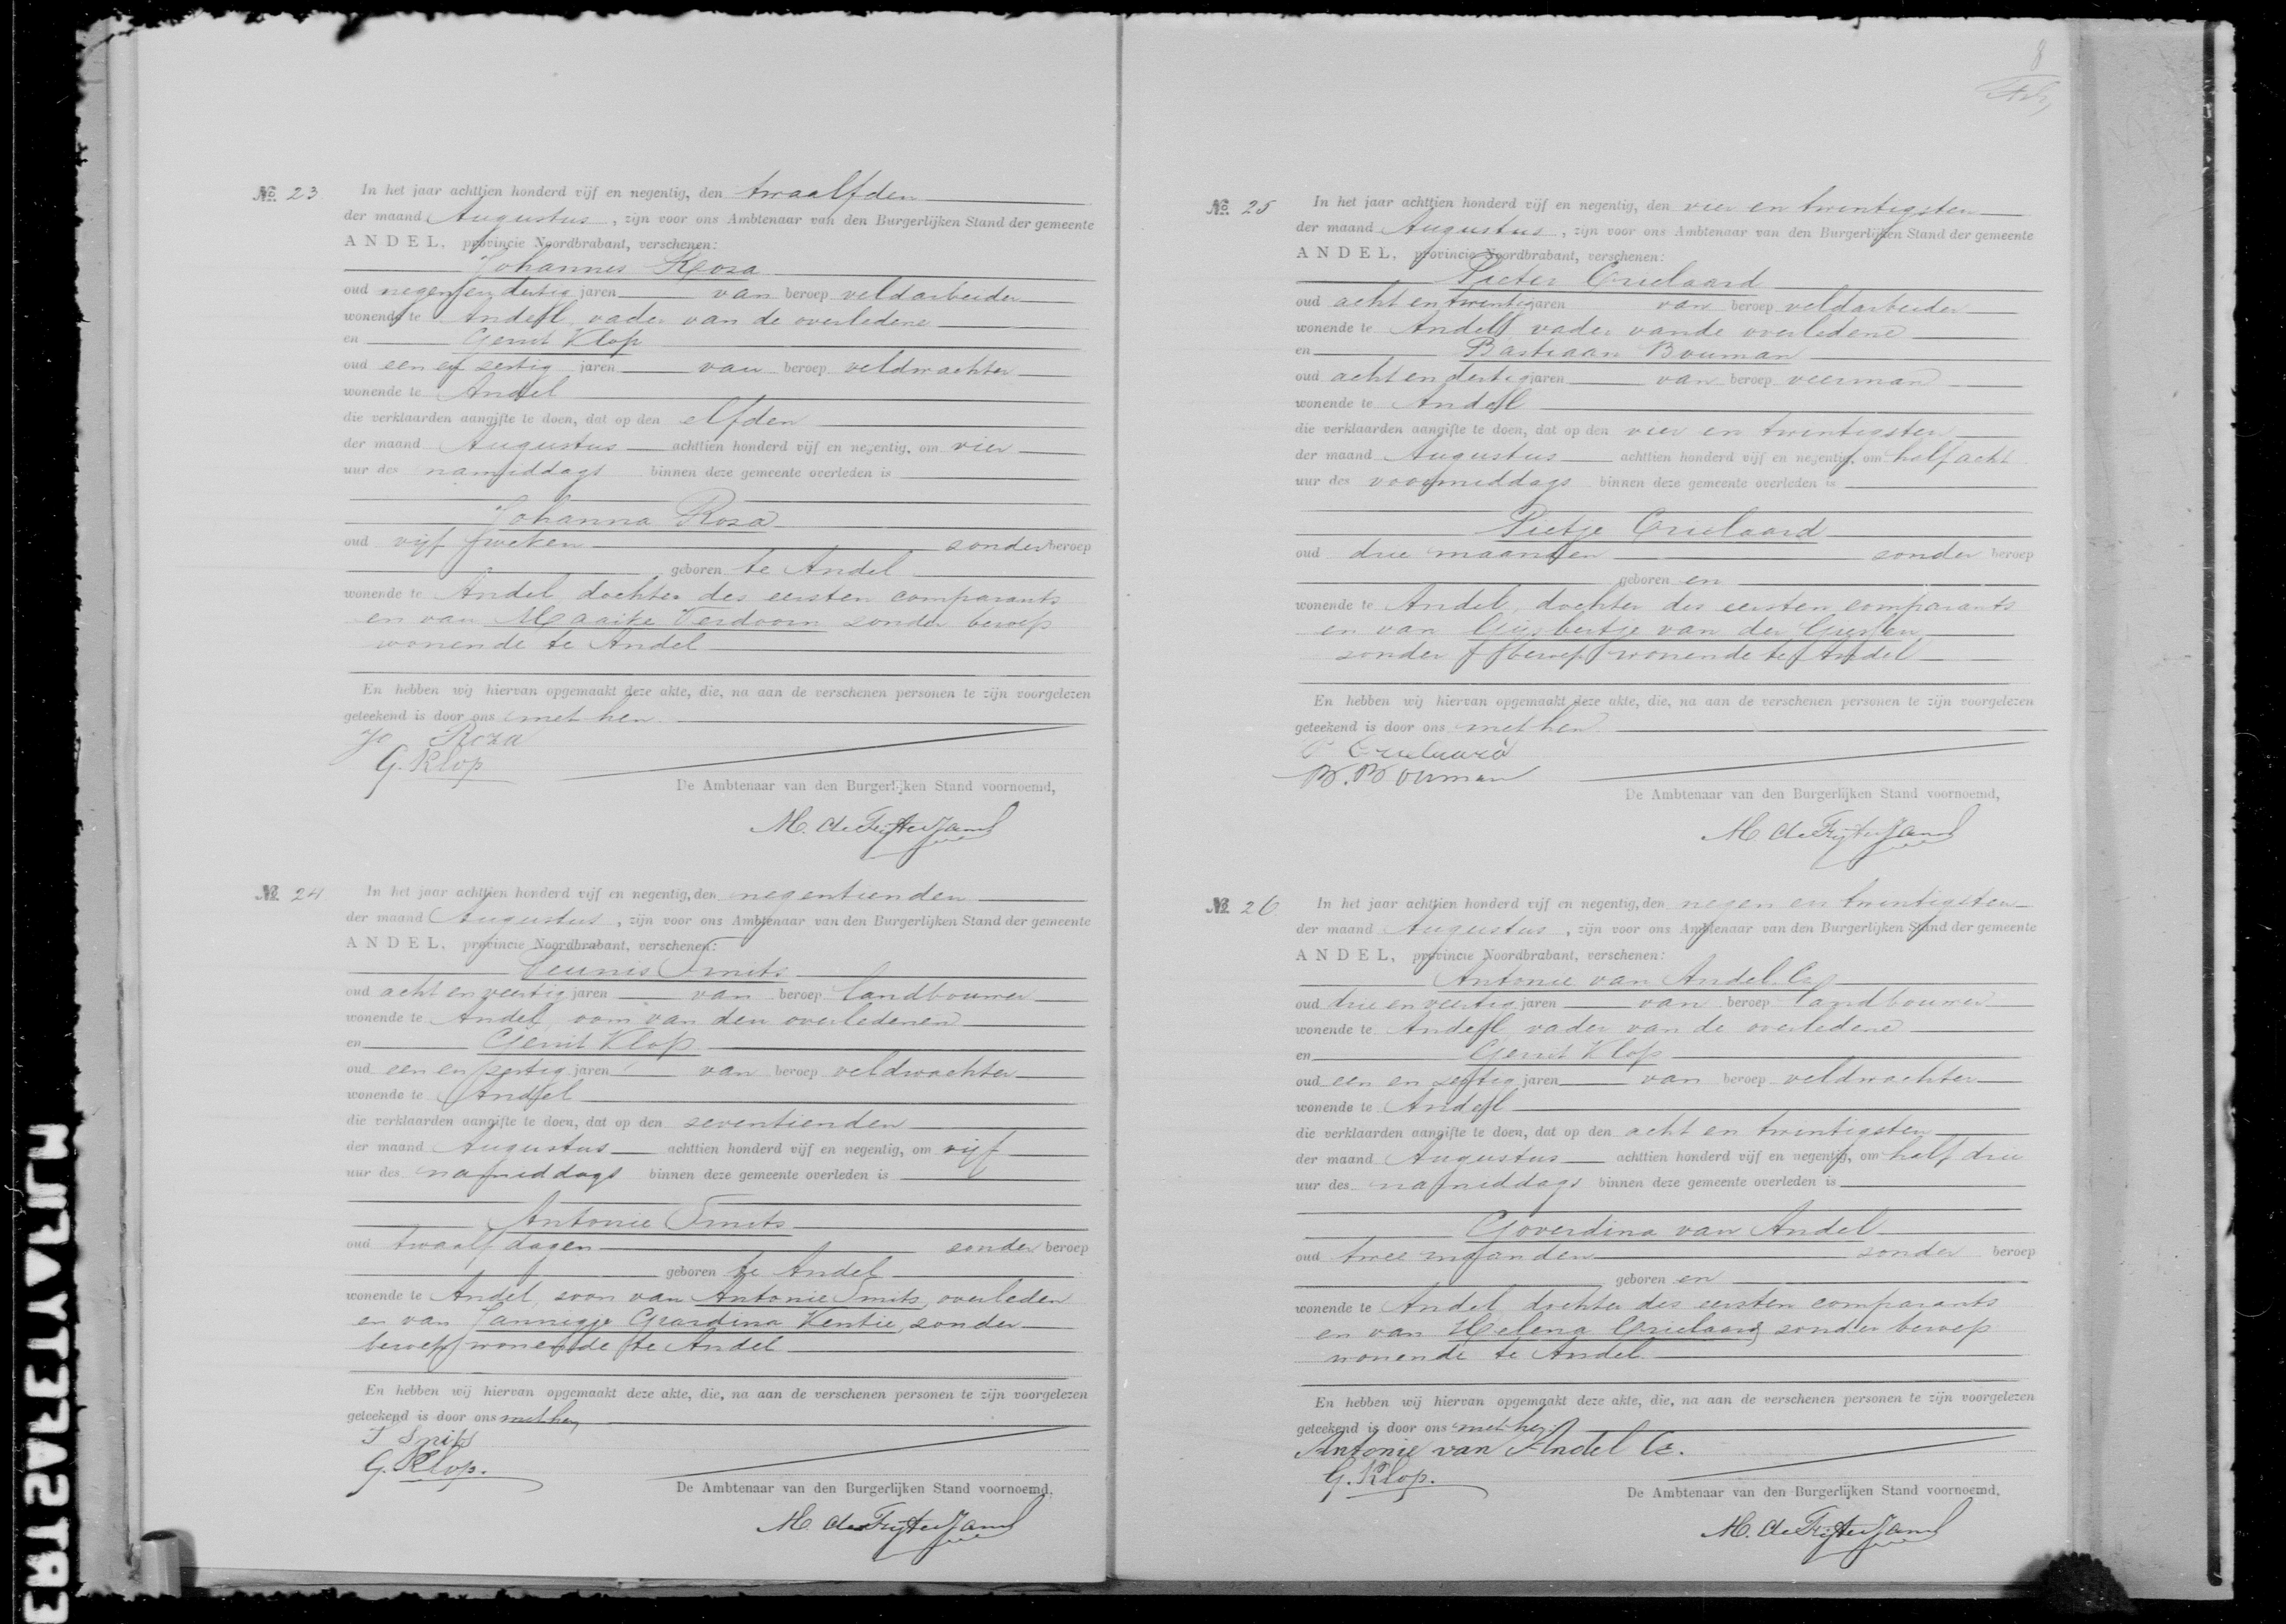 № 23 In het jaar achttien honderd vijf en negentig, den twaalfden
der maand Augustus, zijn voor ons Ambtenaar van den Burgerlijken Stand der gemeente
ANDEL, provincie Noordbrabant, verschenen:
Johannes Roza
oud negen en dertig jaren van beroep veldarbeider
wonende te Andel, vader van de overledene
en Gerrit Klop
oud een en zestig jaren van beroep veldwachter
wonende te Andel
die verklaarden aangifte te doen, dat op den elfden
der maand Augustus achttien honderd vijf en negentig, om vier
uur des namiddags binnen deze gemeente overleden is
Johanna Roza
oud vijf weken zonder beroep
geboren te Andel
wonende te Andel, dochter des eersten comparants
en van Maaike Verdoorn zonder beroep
wonende te Andel
En hebben wij hiervan opgemaakt deze akte, die, na aan de verschenen personen te zijn voorgelezen
geteekend is door ons met hen.
Jo Roza
G. Klop
De Ambtenaar van den Burgerlijken Stand voornoemd,
№ 24 In het jaar achttien honderd vijf en negentig, den negentienden
der maand Augustus, zijn voor ons Ambtenaar van den Burgerlijken Stand der gemeente
ANDEL, provincie Noordbrabant, verschenen:
Teunis Smits
oud acht en veertig jaren van beroep landbouwer
wonende te Andel, oom van den overledenen
en Gerrit Klop
oud een en zestig jaren van beroep veldwachter
wonende te Andel
die verklaarden aangifte te doen, dat op den zeventienden
der maand Augustus achttien honderd vijf en negentig, om vijf
uur des namiddags binnen deze gemeente overleden is
Antonie Smits
oud twaalf dagen zonder beroep
geboren te Andel
wonende te Andel, zoon van Antonie Smits, overleden
en van Jannigje Grardina Kentie, zonder
beroep wonende te Andel
En hebben wij hiervan opgemaakt deze akte, die, na aan de verschenen personen te zijn voorgelezen
geteekend is door ons met hen
T Smits
G. Klop.
De Ambtenaar van den Burgerlijken Stand voornoemd,
8
№ 25 In het jaar achttien honderd vijf en negentig, den vier en twintigsten
der maand Augustus, zijn voor ons Ambtenaar van den Burgerlijken Stand der gemeente
ANDEL, provincie Noordbrabant, verschenen:
Pieter Crielaard
oud acht en twintig jaren van beroep veldarbeider
wonende te Andel vader van de overledene
en Bastiaan Bouman
oud acht en dertig jaren van beroep veerman
wonende te Andel
die verklaarden aangifte te doen, dat op den vier en twintigsten
der maand Augustus achttien honderd vijf en negentig, om half acht
uur des voormiddags binnen deze gemeente overleden is
Pietje Crielaard
oud drie maanden zonder beroep
geboren en
wonende te Andel, dochter des eersten comparants
en van Giesbertje van der
zonder beroep wonende te Andel
En hebben wij hiervan opgemaakt deze akte, die, na aan de verschenen personen te zijn voorgelezen
geteekend is door ons met hen
P Crielaard
B. Bouman
De Ambtenaar van den Burgerlijken Stand voornoemd,
№ 26 In het jaar achttien honderd vijf en negentig, den negen en twintigsten
der maand Augustus, zijn voor ons Ambtenaar van den Burgerlijken Stand der gemeente
ANDEL, provincie Noordbrabant, verschenen:
Antonie van Andel Cz
oud drie en veertig jaren van beroep landbouwer
wonende te Andel, vader van de overledene
en Gerrit Klop
oud een en zestig jaren van beroep veldwachter
wonende te Andel
die verklaarden aangifte te doen, dat op den acht en twintigsten
der maand Augustus achttien honderd vijf en negentig, om half drie
uur des namiddags binnen deze gemeente overleden is
Goverdina van Andel
oud twee maanden zonder beroep
geboren en
wonende te Andel dochter des eersten comparants
en van Helena Crielaard, zonder beroep
wonende te Andel.
En hebben wij hiervan opgemaakt deze akte, die, na aan de verschenen personen te zijn voorgelezen
geteekend is door ons met hen.
Antonie van Andel Cz.
G. Klop.
De Ambtenaar van den Burgerlijken Stand voornoemd,